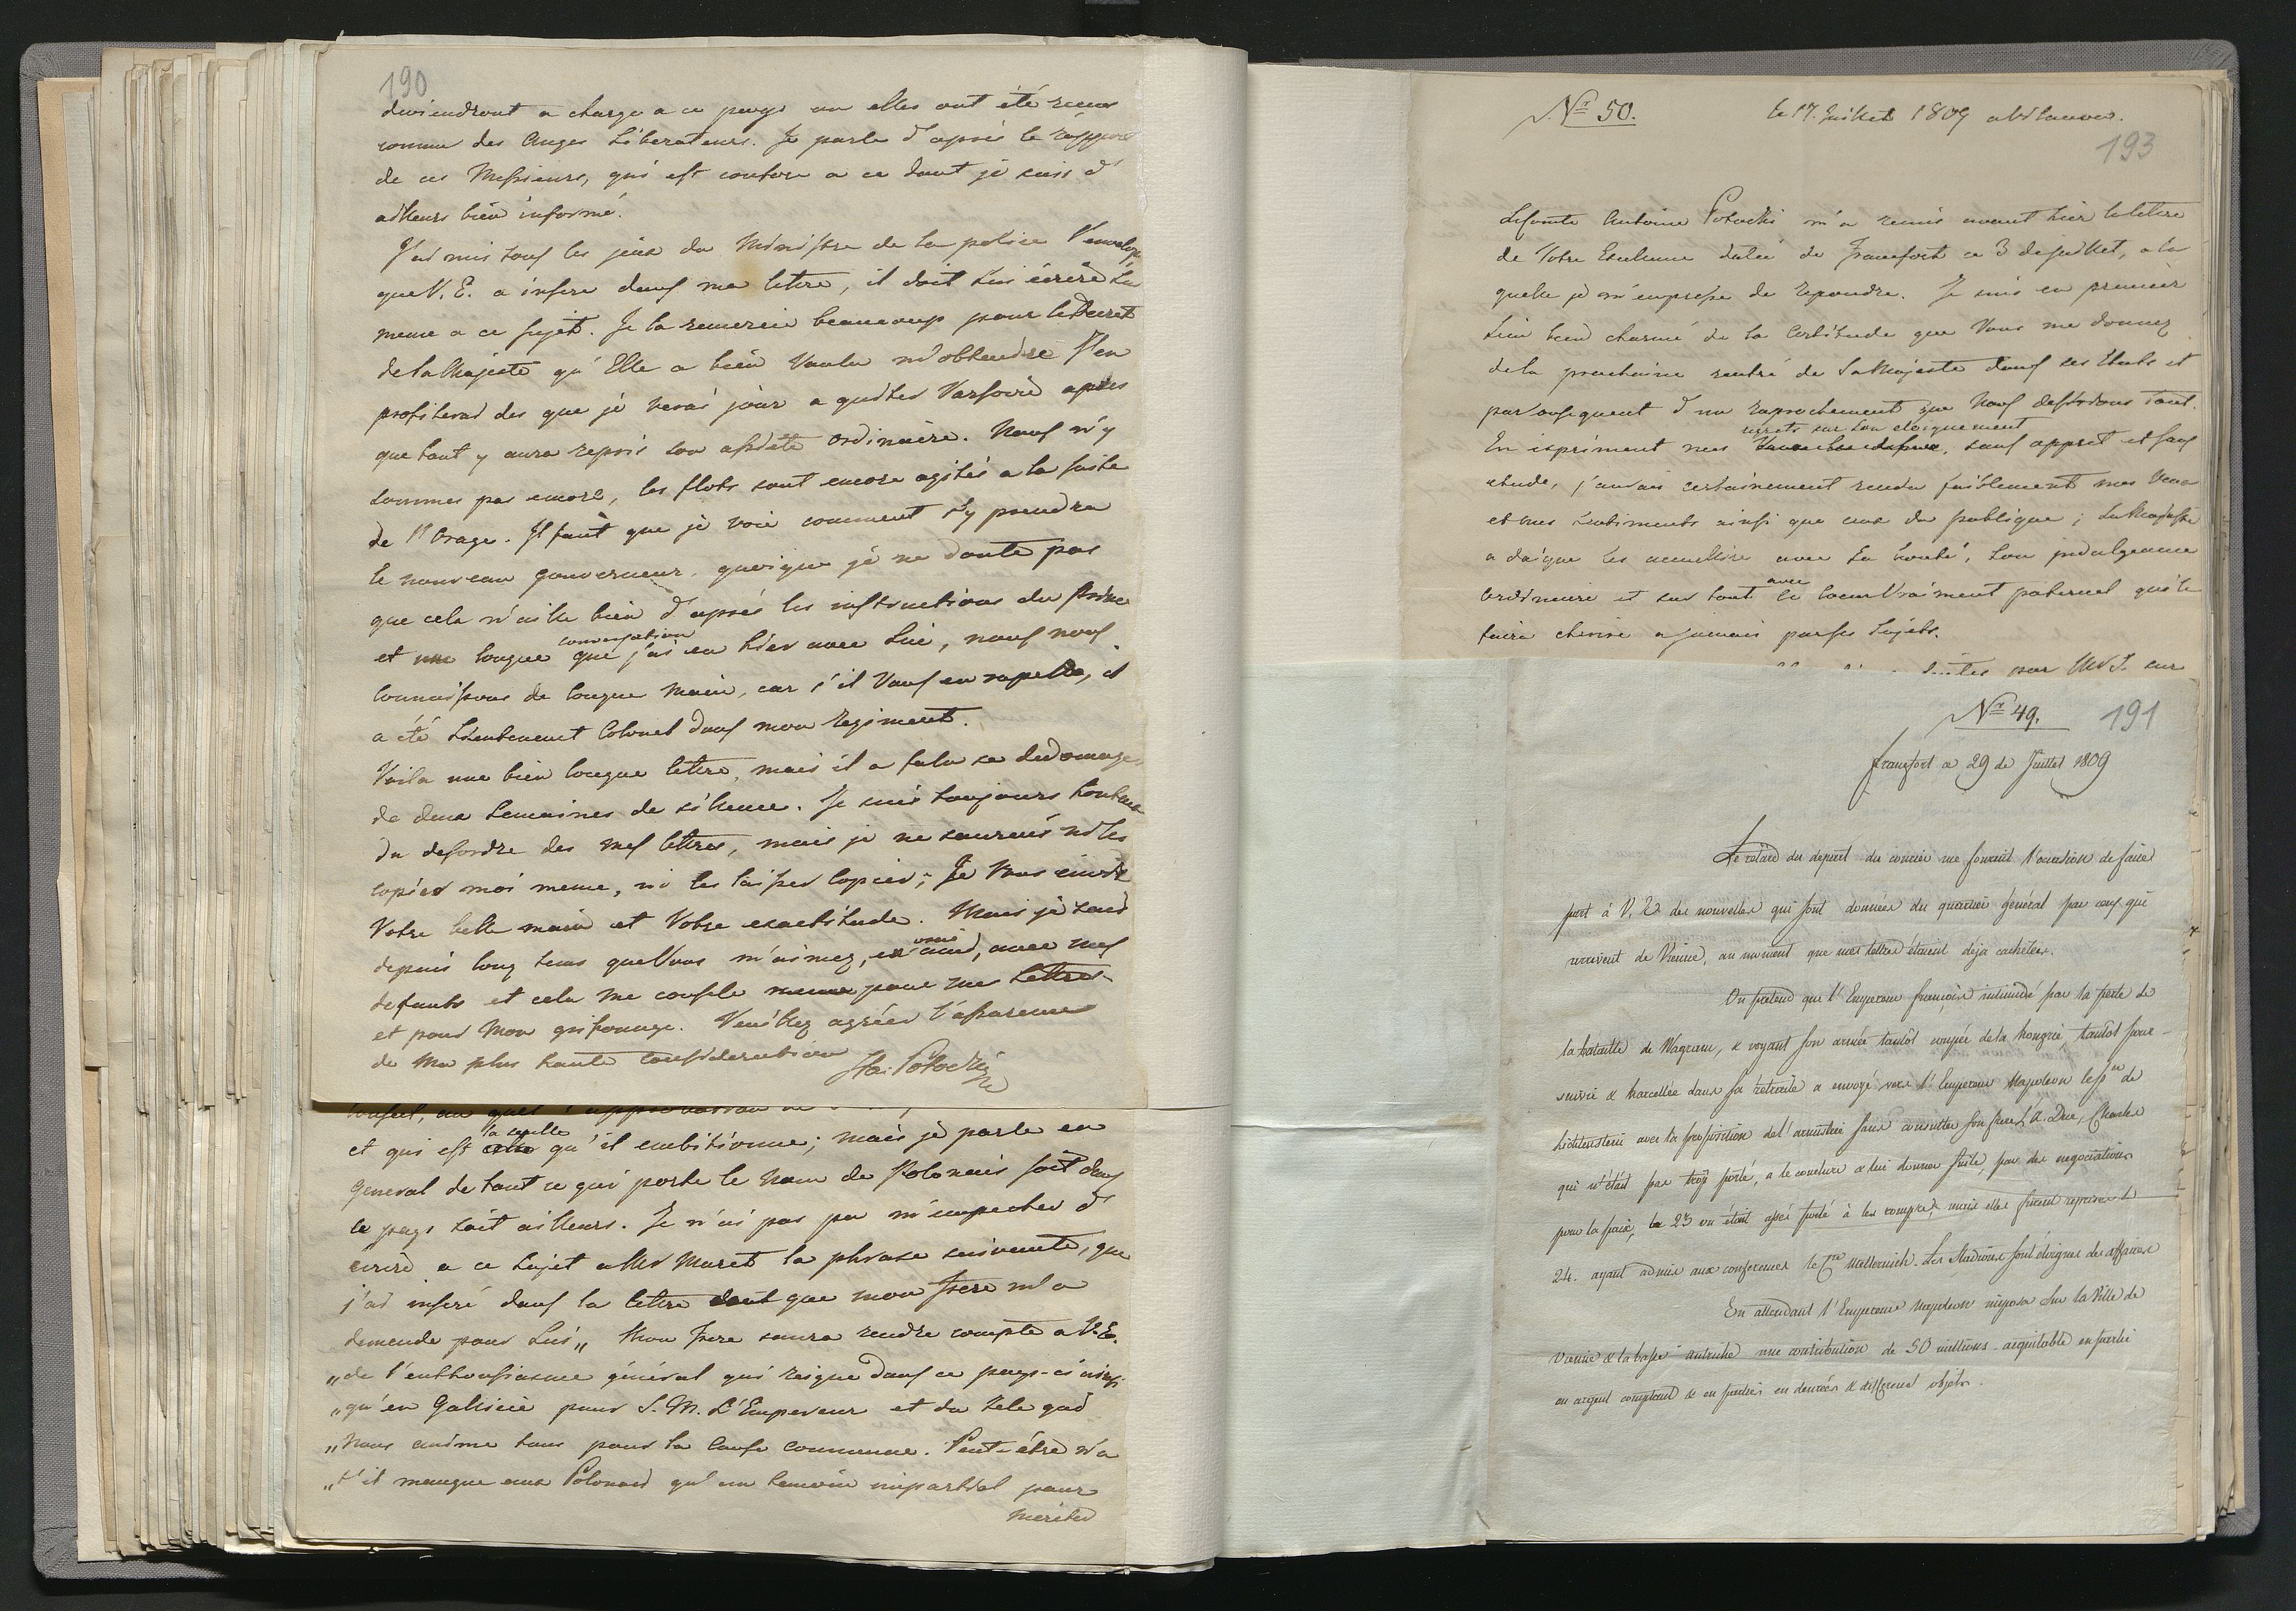 190
deviendront a charge a ce pays ou elles ont été recues
comme des Anges Liberateurs. Je parle d'après le rapport
de ces Messieurs, qui est conforme a ce dont je suis d'
ailleurs bien informé.
J'ai mis sous les yeux du Ministre de la police l'envelope
que V. E. a inseré dans ma lettre, il doit Lui écrire Lui
meme a ce sujet. Je la remercie beaucoup pour le Decret
de Sa Majesté qu'Elle a bien Voulu m'obtenir. J'en
profiterai des que je verai jour a quitter Varsovie apres
que tout y aura repris son assiete ordinaire. Nous n'y
sommes pas encore, les flots sont encore agités a la suite
de l'Orage. Il faut que je voie comment s'y prendra
le nouveau gouverneur, quoique je ne doute pas
que cela n'aille bien d'après les instructions du Prince
et une longue conversation que j'ai eu hier avec Lui, nous nous
connaissons de longue main, car s'il Vous en rapelle, il
a été Lieutenant Colonel dans mon regiment.
Voila une bien longue lettre, mais il a falu se dedomager
de deux Semaines de silence. Je suis toujours honteux
du desordre des mes lettres, mais je ne saurais ni les
copier moi meme, ni les laisser copier; Je Vous envie
Votre belle main et Votre exactitude. Mais je sais
depuis long tems que Vous m'aimez, en vrai ami, avec mes
defauts et cela me console meme pour mes Lettres
et pour Mon grifonage. Veuillez agréer l'assurence
de Ma plus haute consideration
Sta: Potocki
et qui est la seulle qu'il embitionne; mais je parle en
general de tout ce qui porte le Nom de Polonais soit dans
le pays soit ailleurs. Je n'ai pas pu m'empecher d'
écrire a ce sujet a Mr Maret la phrase suivente, que
j'ai inseré dans la lettre que mon frere m'a
demendé pour Lui „ Mon frere saura rendre compte a V. E.
„de l'enthousiasme général qui reigne dans ce pays-ci ainsi
„qu'en Gallicie pour S. M. L'Empereur et du Zele qui
„Nous anime tous pour la Cause commune. Peut-être n'a
„t'il manqué aux Polonais qu'un temoin impartial pour
meriter
Nr 50.
le 17. Juillet 1809 a Vilanow.
193
Le Comte Antoine Potocki m'a remis avant hier la lettre
de Votre Excellence datée de Francfort ce 3 de juillet, a la
quelle je m'empresse de repondre. Je suis en premier
Lieu bien charmé de la Certitude que Vous me donnez
de la prochaine rentré de Sa Majesté dans ses Etats et
par consequent d'un raprochement que Nous desirons tant.
regrets sur Son eloignement
En expriment nos , sans appret et sans
etude, j'aurais certainement rendu faiblement mes Vœux
et mes Sentiments ainsi que ceux du publique; Sa Majesté
a daigné les acceuillire avec Sa bonté, Son indulgeance
Ordinaire et sur tout avec ce Cœur Vraiment paternel qui le
faira cherire a jamais par ses Sujets.
par Mr S. sur
Nr 49.
191
Francfort ce 29 de Juillet 1809
Le retard du depart du courier me fournit l'occasion de faire
part à V. E. des nouvelles qui sont données du quartier général par ceux qui
arrivent de Vienne, au moment que mes lettres étaient déja cachetées.
On pretend que l'Empereur françois intimidé par la perte de
la bataille de Wagram, & voyant son armée tantôt coupée de la hongrie, tantôt pour-
suivie & harcellée dans sa retraite a envoyé vers l'Empereur Napoleon le pce de
Lichtenstein avec la proposition de l'armistice sans consulter son frere L'A. Duc, Charles
qui n'était pas trop porté, a le conclure & lui donner suite, par des negociations
pour la paix, le 23 on était assés porté à les rompre, mais elles furent reprises le
24. ayant admis aux conferences le Cte Metternich. Les Stadions sont éloignés des affaires
En attendant l'Empereur Napoleon imposa sur la Ville de
Vienne & la basse autriche une contribution de 50 millions acquitable en partie
en argent comptant & en partie en denrées & differens objets.